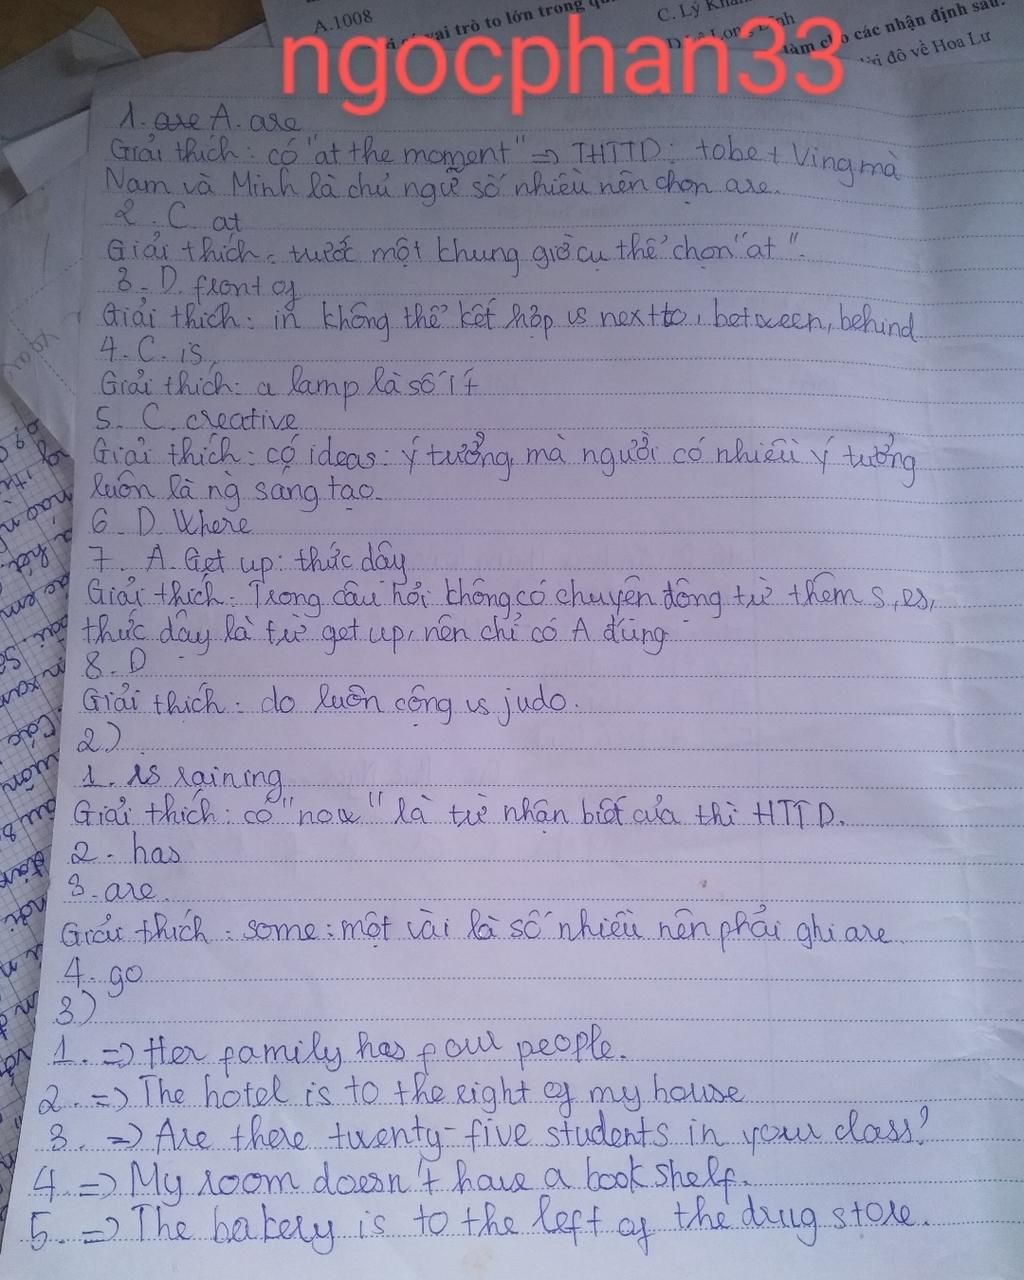 A.1008
vai trò to lớn trong
C. Lý
làm cho các nhận định sau:
đô về Hoa Lư
ngocphan33
1. are A. are
Giải thích: có "at the moment" => THTTD: tobe + Ving mà
Nam và Minh là chủ ngữ số nhiều nên chọn are.
2. C. at
Giải thích: trước một khung giờ cụ thể chọn "at".
3. D. front of
Giải thích: in không thể kết hợp vs next to, between, behind
4. C. is
Giải thích: a lamp là số ít
5. C. creative
Giải thích: có ideas: ý tưởng, mà người có nhiều ý tưởng
luôn là ng sáng tạo.
6. D. Where
7. A. Get up: thức dậy
Giải thích: Trong câu hỏi không có chuyện động từ thêm s, es,
thức dậy là từ get up, nên chỉ có A đúng
8. D
Giải thích: do luôn cộng vs judo.
2)
1. is raining
Giải thích: có "now" là từ nhận biết của thì HTTD.
2. has
3. are.
Giải thích: some: một vài là số nhiều nên phải ghi are
4. go
3)
1. => Her family has four people.
2. => The hotel is to the right of my house
3. => Are there twenty-five students in your class?
4. => My room doesn't have a book shelf.
5. => The bakery is to the left of the drug store.